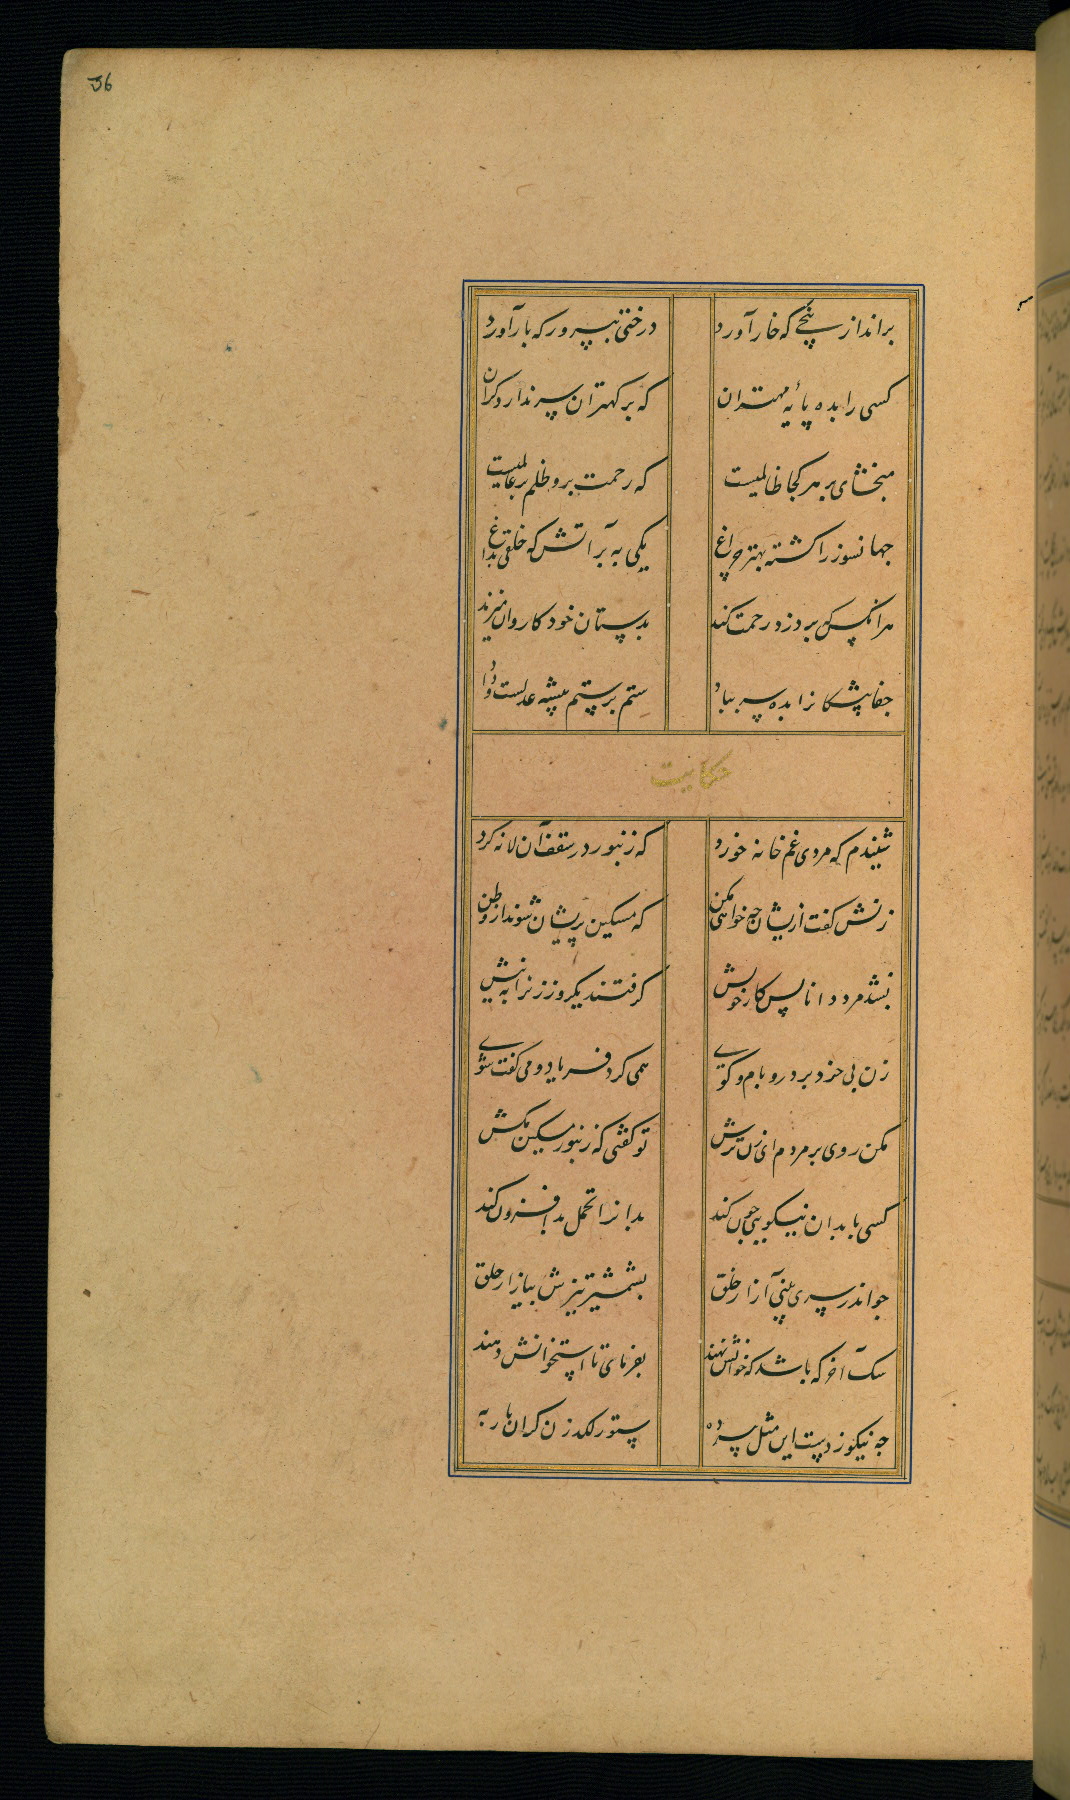 36
برانداز بیخی که خار آورد درختی بپرور که بار آورد
کسی را بده پایهٔ مهتران که بر کهتران سر ندارد کران
مبخشای بر هر کجا ظالمیست که رحمت برو ظلم بر عالمیست
جهانسوز را کشته بهتر چراغ یکی به بر آتش که خلقی بداغ
هر آنکس که بر دزد رحمت کند بدستان خود کاروان میزند
جفاپیشکانرا بده سر بباد ستم بر ستم پیشه عدلست و داد
حکایت
شنیدم که مردی غم خانه خورد که زنبور در سقف آن لانه کرد
زنش کفت ازیشان چه خواهی مکن که مسکین پریشان شوند از وطن
بشد مرد دانا پس کار خویش کرفتند یکروز زنرا به نیش
زن بی خرد بر در و بام و کوی همی کرد فریاد و می کفت شوی
مکن روی بر مردم ای زن ترش تو کفتی که زنبور مسکین مکش
کسی با بدان نیکویی چون کند بدانرا تحمل بد افزون کند
جو اندر سری بینی آزار خلق بشمشیر تیزش بیازار حلق
سک آخر که باشد که خوانش نهند بفرمای تا استخوانش دهند
جه نیکو زدست این مثل پیر ده ستور لکدزن کران بار به